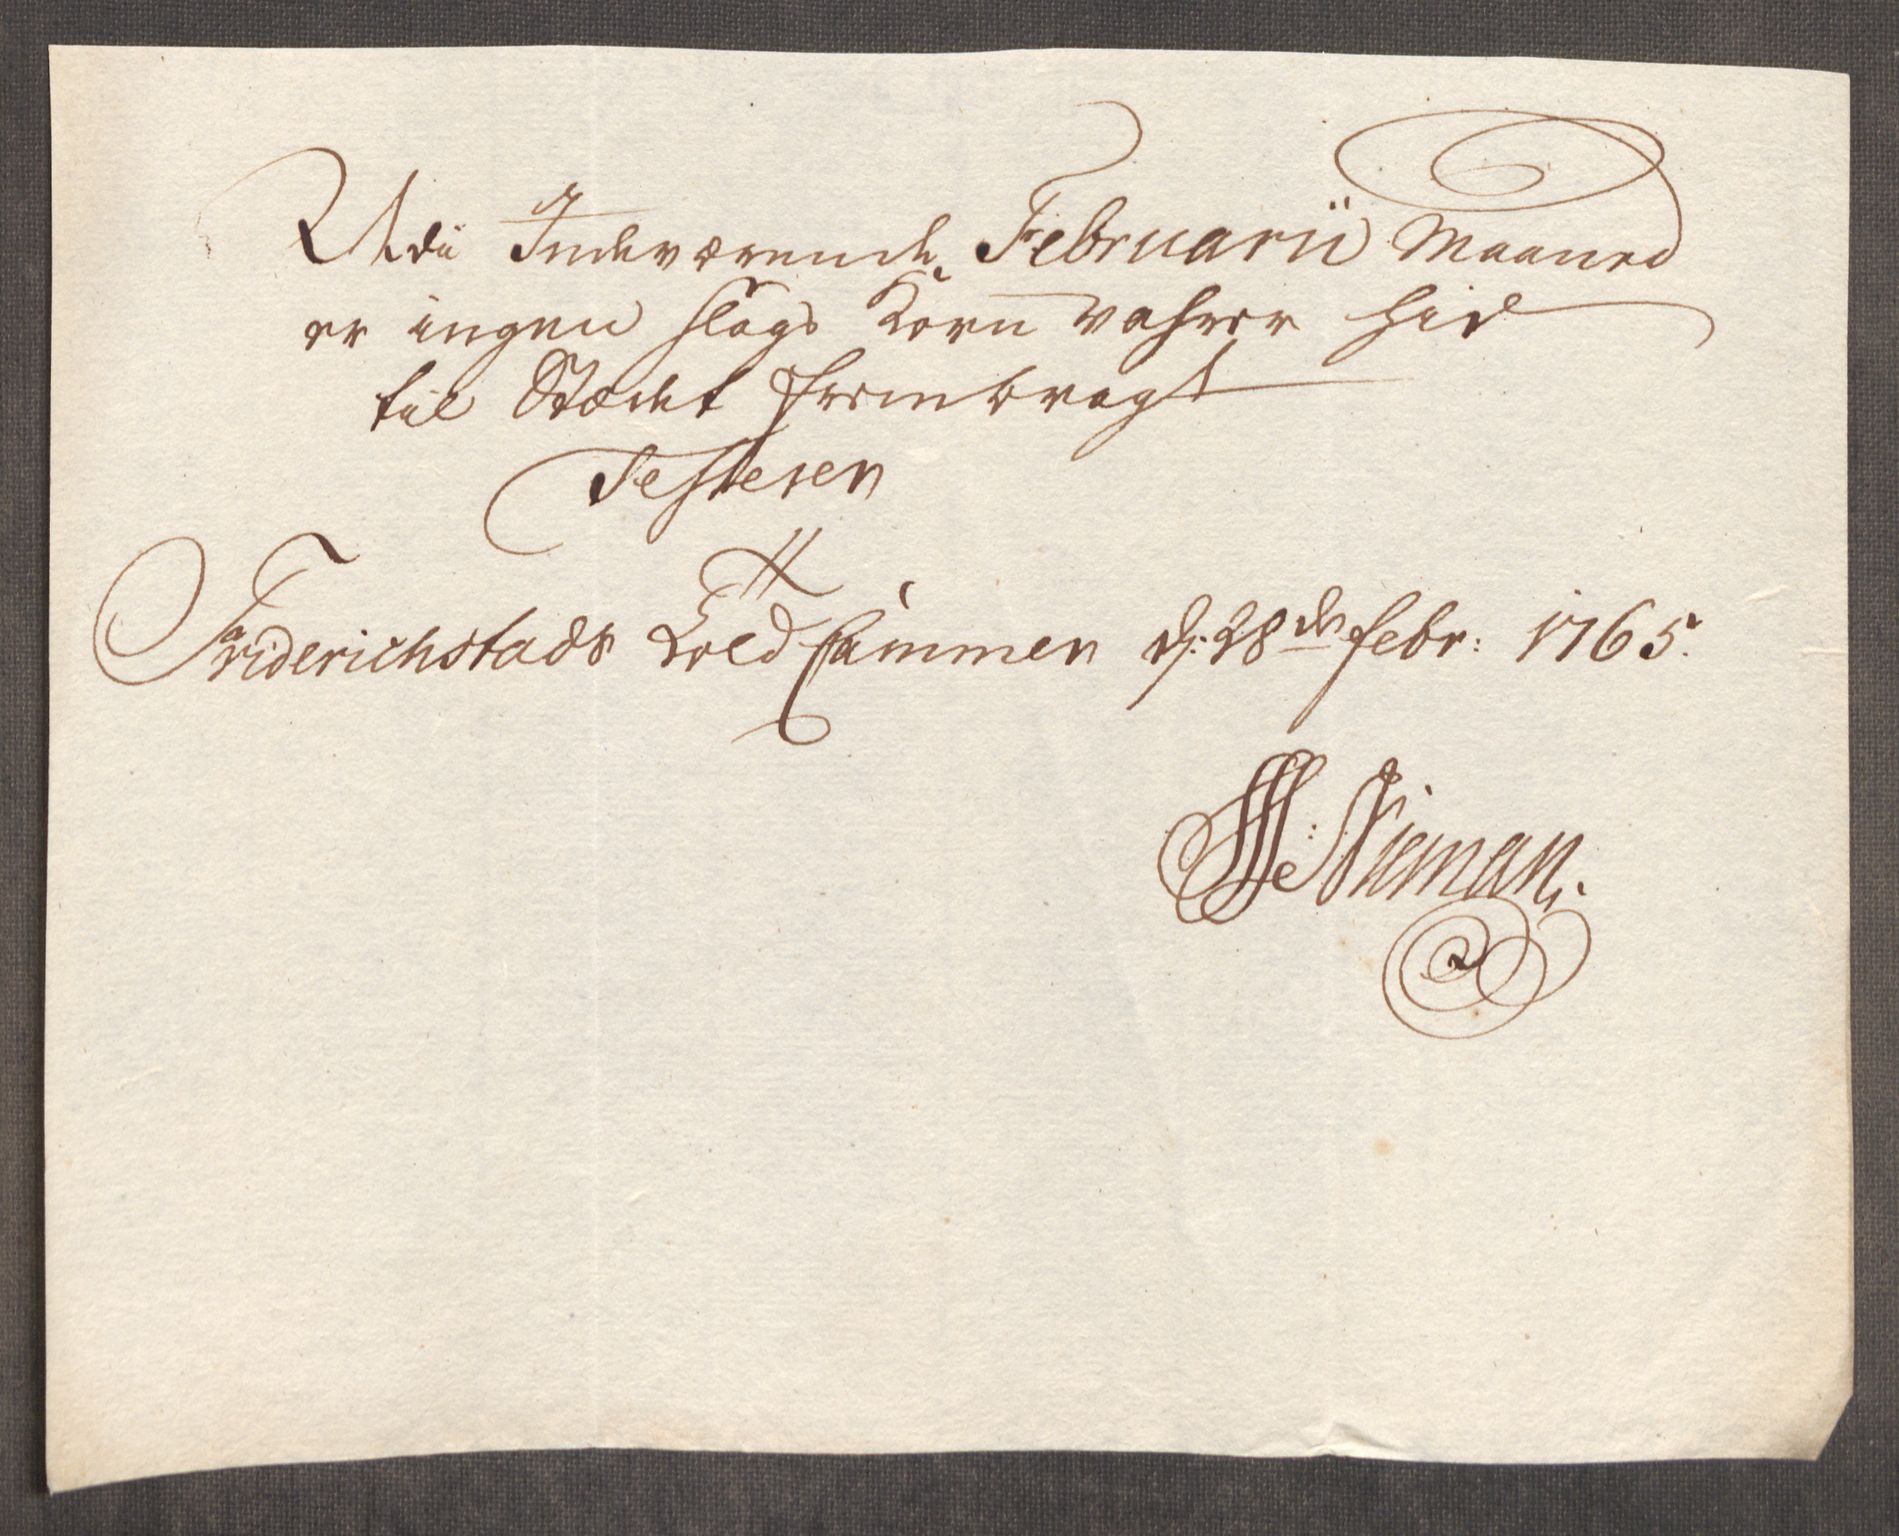 Udi Indeværende Februarii Maaned
er ingen slags Korn Vahrer hid
til Stædet frembragt
Testerer
Friderichstads Told Cammer d: 28de Febr: 1765.
Nieman.